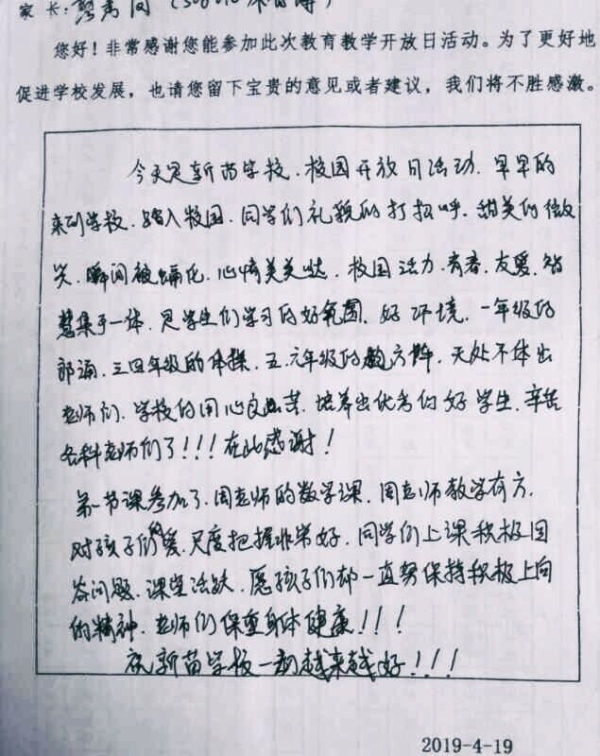 家长:
您好！非常感谢您能参加此次教育教学开放日活动。为了更好地
促进学校发展，也请您留下宝贵的意见或者建议，我们将不胜感激。
今天是新苗学校、校园开放日活动、早早的
来到学校、踏入校园、同学们礼貌的打招呼、甜美的微
笑、瞬间被融化、心情美美哒、校园活力、青春、友爱、智
慧集于一体、是学生们学习的好氛围、好环境、一年级的
朗诵、三四年级的体操、五、六年级的方阵、无处不体出
老师们、学校的用心良苦、培养出优秀的好学生、辛苦
各科老师们了！！！在此感谢！
第一节课参加了、周老师的数学课、周老师教学有方、
对孩子们的爱、尺度把握非常好、同学们上课积极回
答问题、课堂活跃、愿孩子们都一直努保持积极上向
的精神、老师们保重身体健康！！！
祝新苗学校一切越来越好！！！
2019-4-19